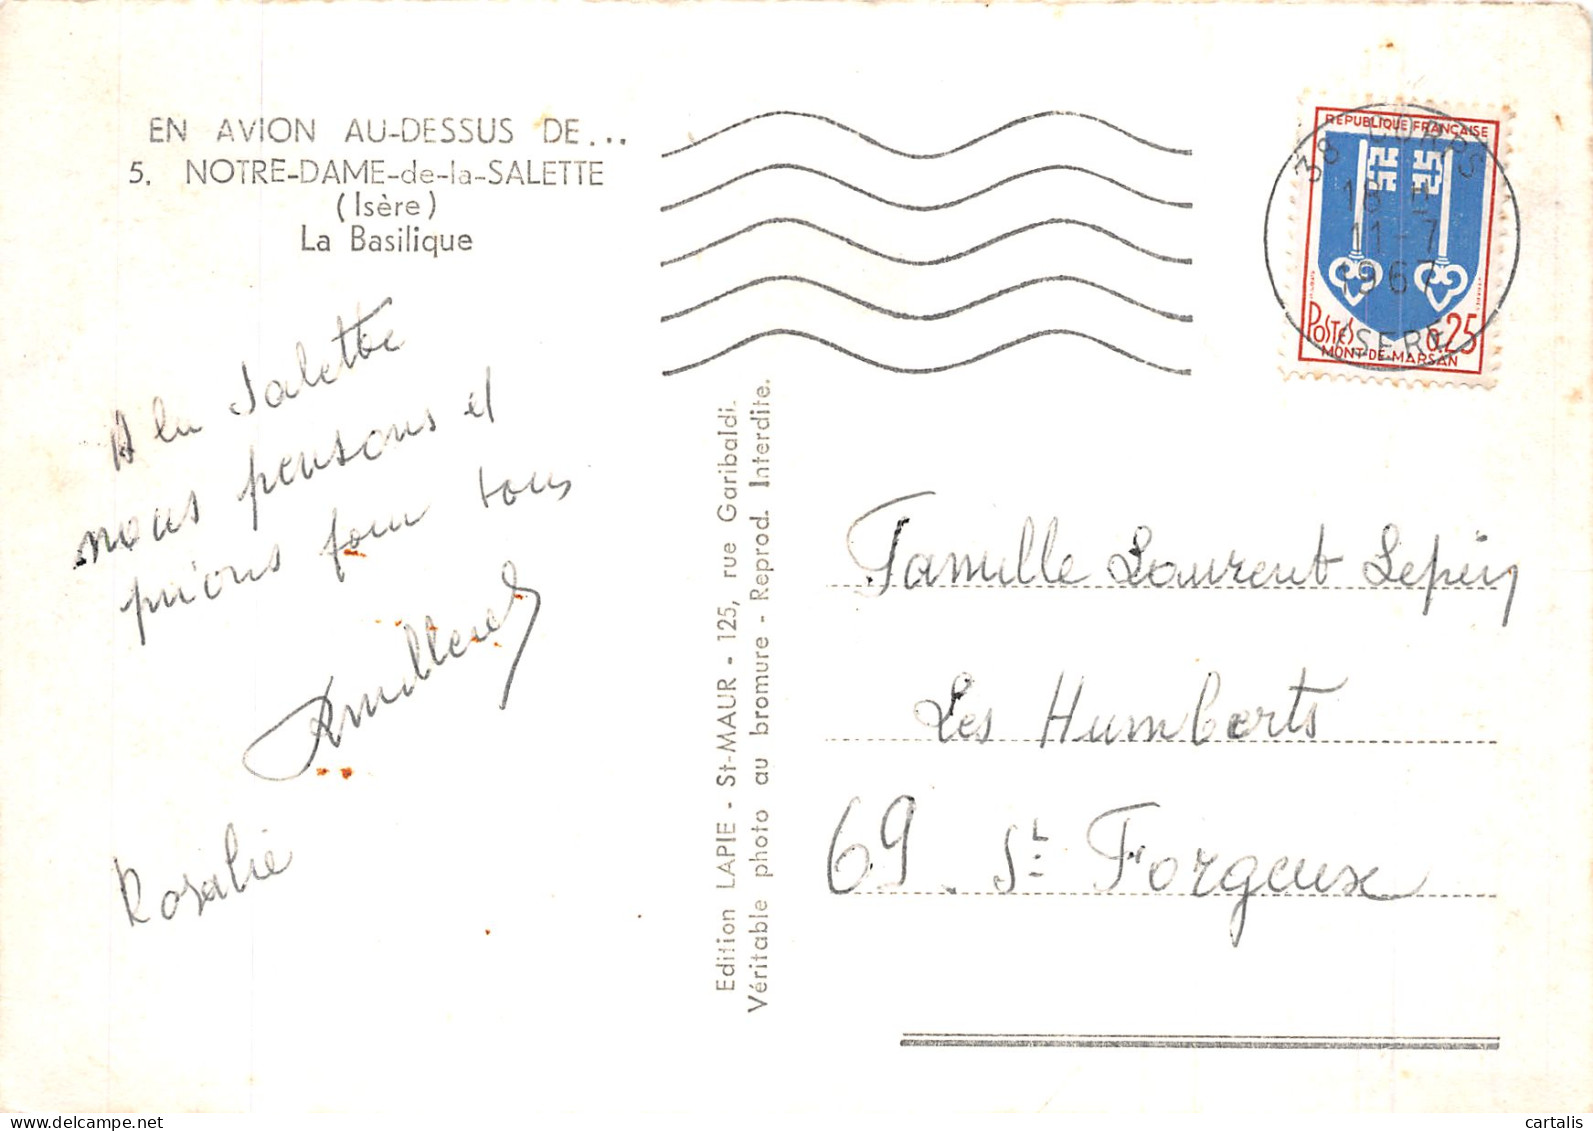 EN AVION AU-DESSUS DE...
5. NOTRE-DAME-de-la-SALETTE
(Isère)
La Basilique
A la Salette
nous pensons et
prions pour tous
Rosalie
Edition LAPIE - St-MAUR - 125, rue Garibaldi.
Véritable photo au bromure - Reprod. Interdite.
REPUBLIQUE FRANÇAISE
POSTES 0,25
MONT-DE-MARSAN
38 CORPS
18 H
11-7
1967
ISERE
Famille Laurent Lepin
Les Humberts
69. St Forgeux
cartalis
delcampe.net